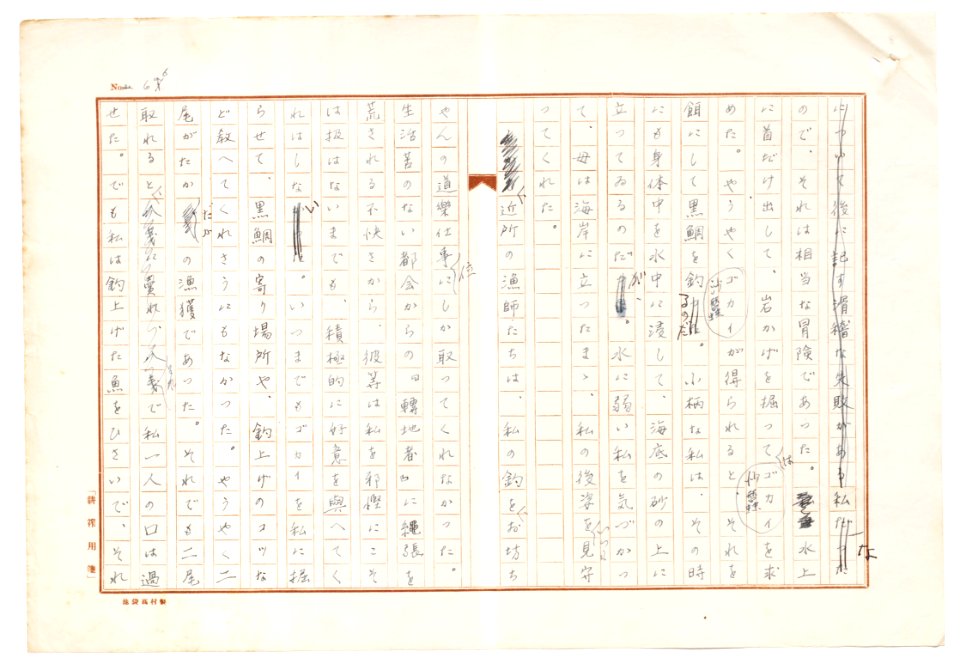 No. 6
につゐて後に記す滑稽な失敗がある私だつた
な
ので、それは相当な冒険であつた。水上
に首だけ出して、岩かげを掘つてはゴカイを求
めた。やうやくゴカイが得られると、それを
沙蠶
餌にして黒鯛を釣るのだ。小柄な私は、その時
にも身体中を水中に浸して、海底の砂の上に
立つてゐるのだが、水に弱い私を気づかつ
て、母は海岸に立つたまゝ、私の後姿を見守
つてくれた。
近所の漁師たちは、私の釣をお坊ち
やんの道樂仕事位にしか取つてくれなかつた。
生活苦のない都会からの轉地者に縄張を
荒される不快さから、彼等は私を邪慳にこそ
は扱はないまでも、積極的に好意を與へてく
れはしない。いつまでもゴカイを私に掘
らせて、黒鯛の寄り場所や、釣上げのコツな
ど教へてくれさうにもなかつた。やうやく二
尾がたかだかの漁獲であつた。それでも二尾
取れると、私一人の口は過
せた。でも私は釣上げた魚をひさいで、それ
「誹諧用箋」